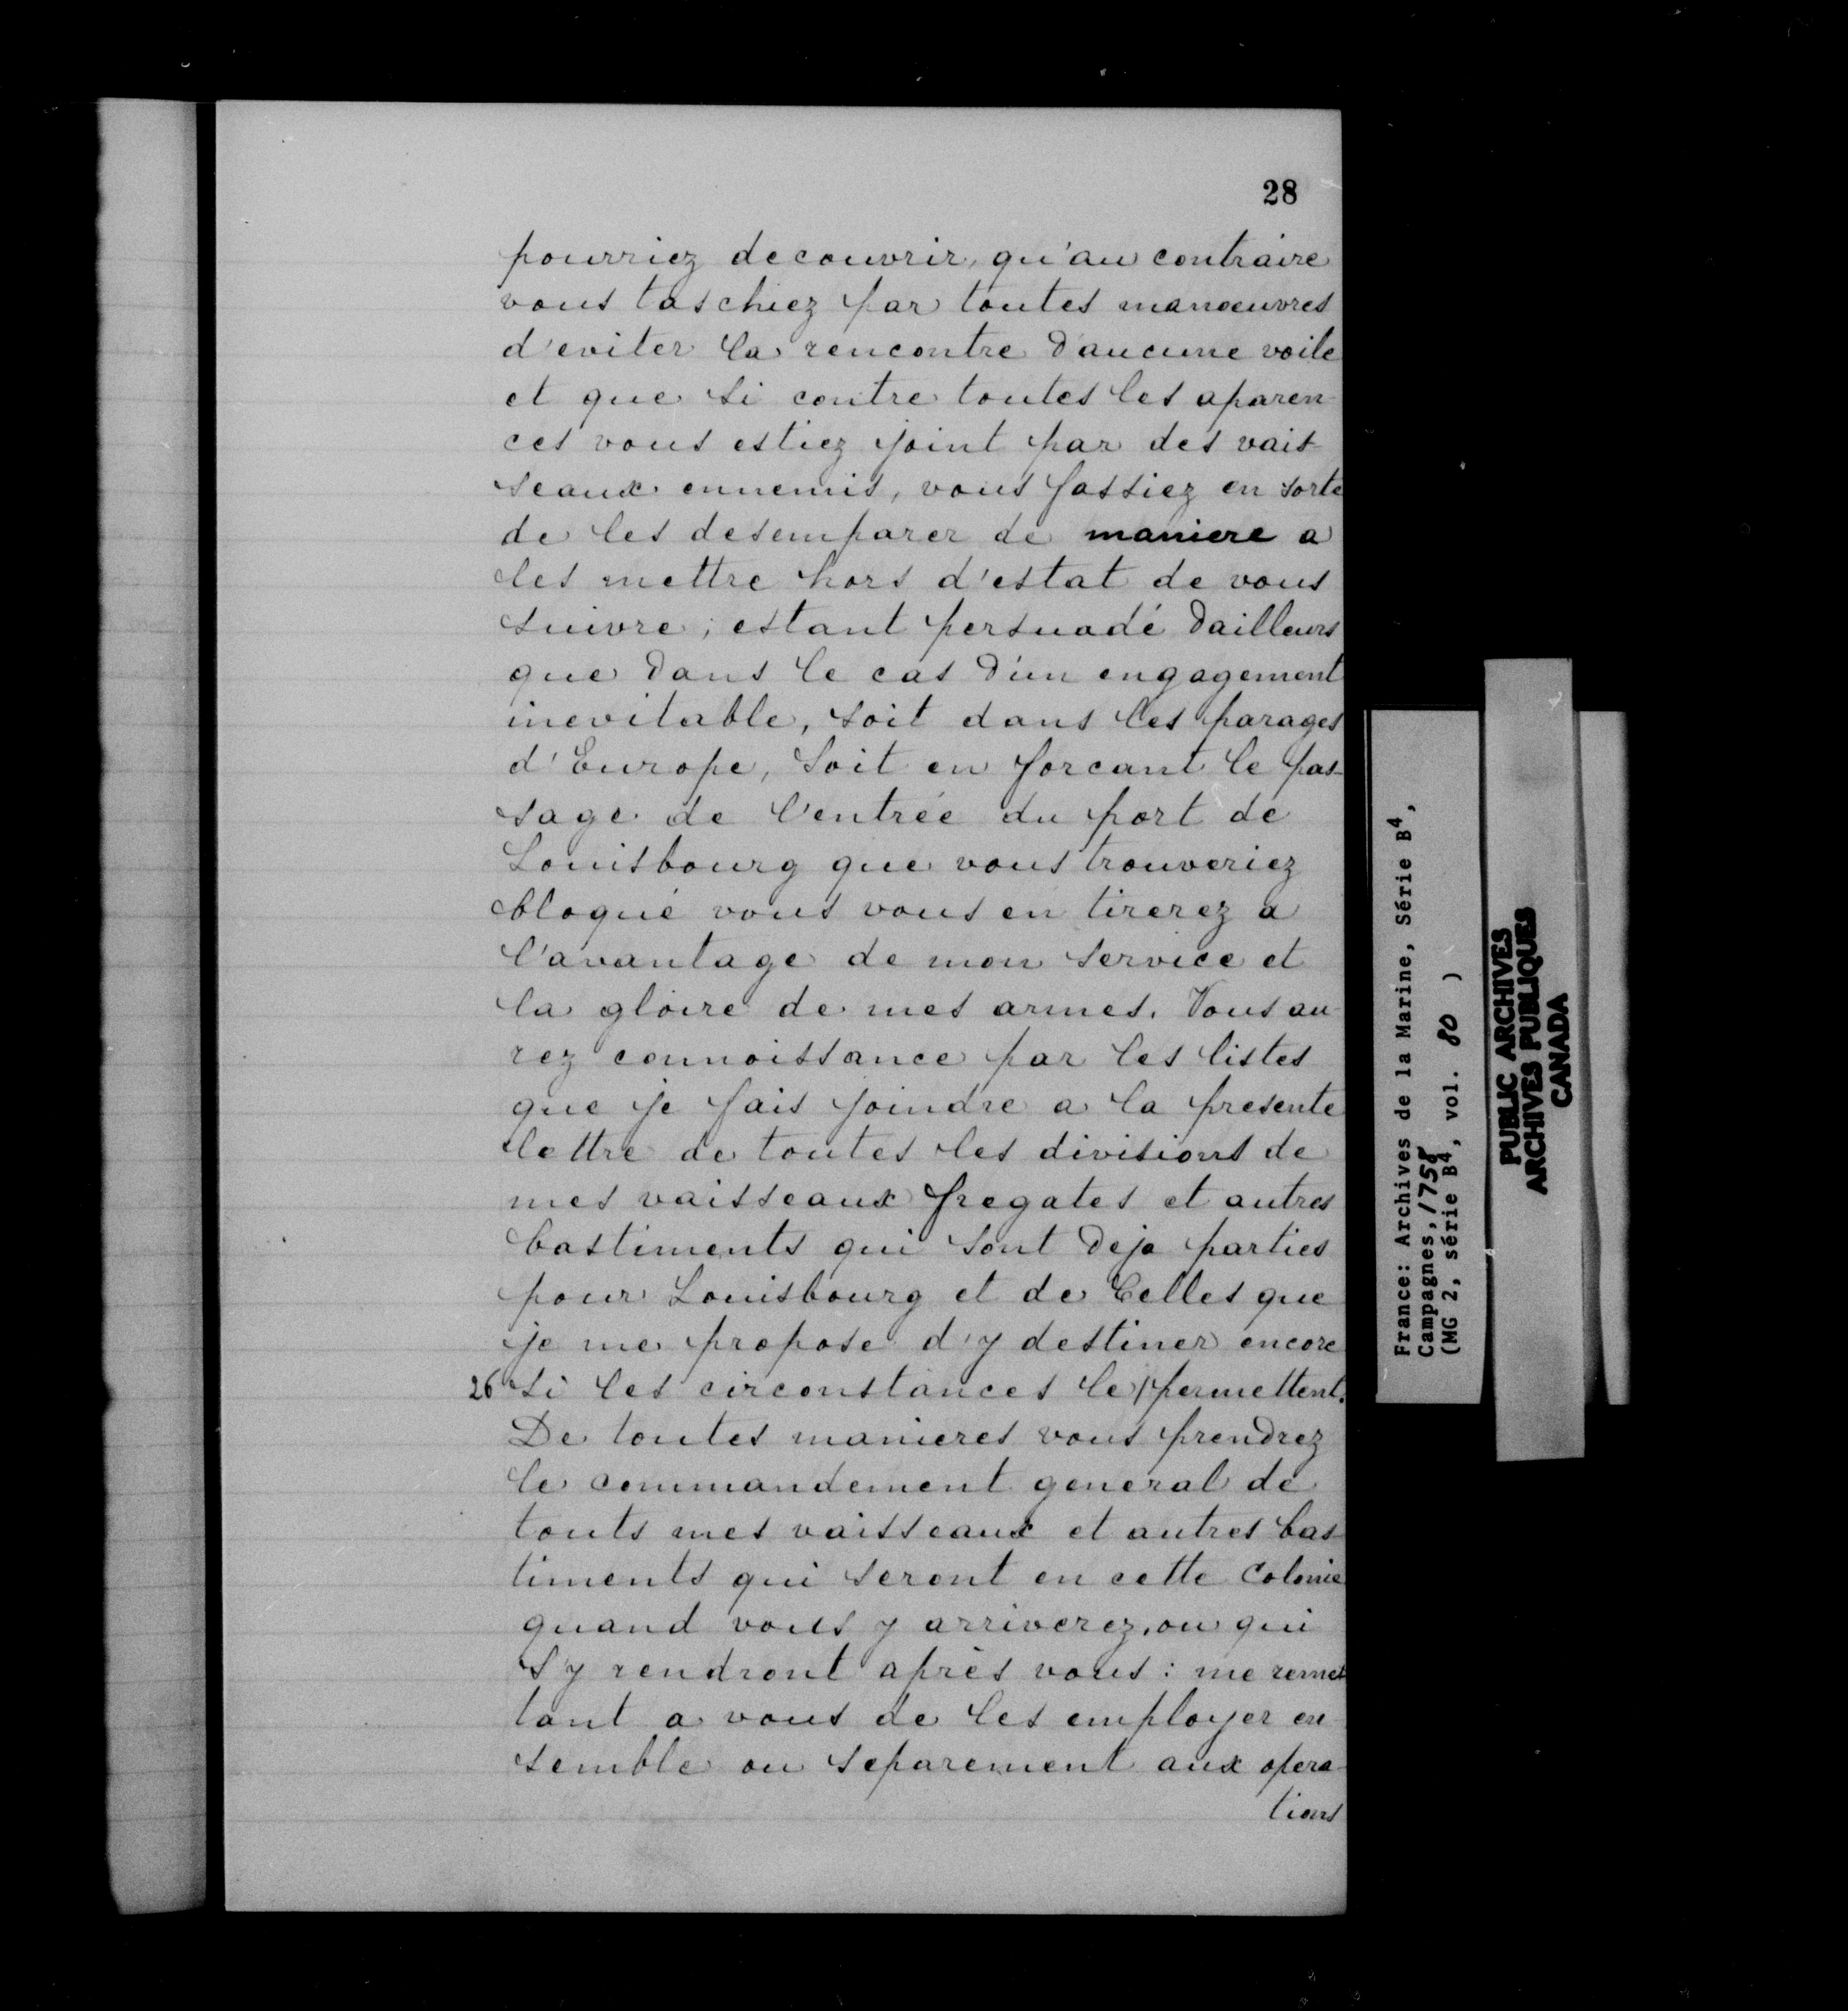 28
pourriez decouvrir, qu'au contraire
vous taschiez par toutes manoeuvres
d'eviter la rencontre d'aucune voile
et que si contre toutes les aparen-
ces vous estiez joint par des vais-
seaux ennemis, vous fassiez en sorte
de les desemparer de maniere a
les mettre hors d'estat de vous
suivre; estant persuadé dailleurs
que dans le cas d'un engagement
inevitable, soit dans les parages
d'Europe, soit en forcant le pas-
sage de l'entrée du port de
Louisbourg que vous trouveriez
bloqué vous vous en tirerez a
l'avantage de mon service et
la gloire de mes armes. Vous au-
rez connoissance par les listes
que je fais joindre a la presente
lettre de toutes les divisions de
mes vaisseaux fregates et autres
bastiments qui sont deja parties
pour Louisbourg et de Celles que
je me propose d'y destiner encore
26 si les circonstances le / permettent.
De toutes manieres vous prendrez
le commandement general de
touts mes vaisseaux et autres bas-
timents qui seront en cette Colonie
quand vous y arriverez, ou qui
s'y rendront après vous : me remet
tant a vous de les employer en-
semble ou separement aux opera-
tions
France: Archives de la Marine, Série B4,
Campagnes, 1758
(MG 2, série B4, vol. 80 )
PUBLIC ARCHIVES
ARCHIVES PUBLIQUES
CANADA